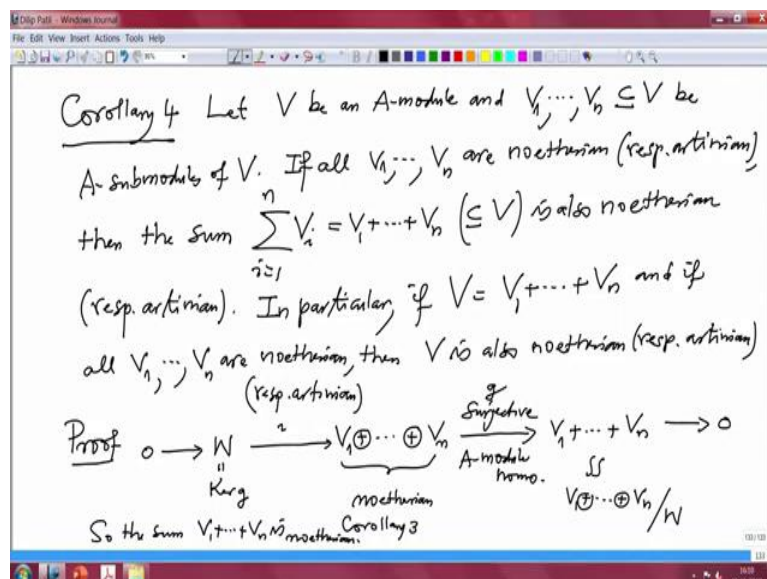 Dilip Patil - Windows Journal
File Edit View Insert Actions Tools Help
Corollary 4 Let V be an A-module and V_1, ..., V_n ⊆ V be
A-submodules of V. If all V_1, ..., V_n are noetherian (resp. artinian),
then the sum \sum_{i=1}^{n} V_i = V_1 + ... + V_n (⊆ V) is also noetherian
(resp. artinian). In particular, if V = V_1 + ... + V_n and if
all V_1, ..., V_n are noetherian, then V is also noetherian (resp. artinian)
(resp. artinian)
Proof 0 → W →^{i} V_1 ⊕ ... ⊕ V_n →^{g surjective}_{A-module homo.} V_1 + ... + V_n → 0
= Ker g
noetherian
Corollary 3
≅ V_1 ⊕ ... ⊕ V_n / W
So the sum V_1 + ... + V_n is noetherian.
133/133
133
16:10